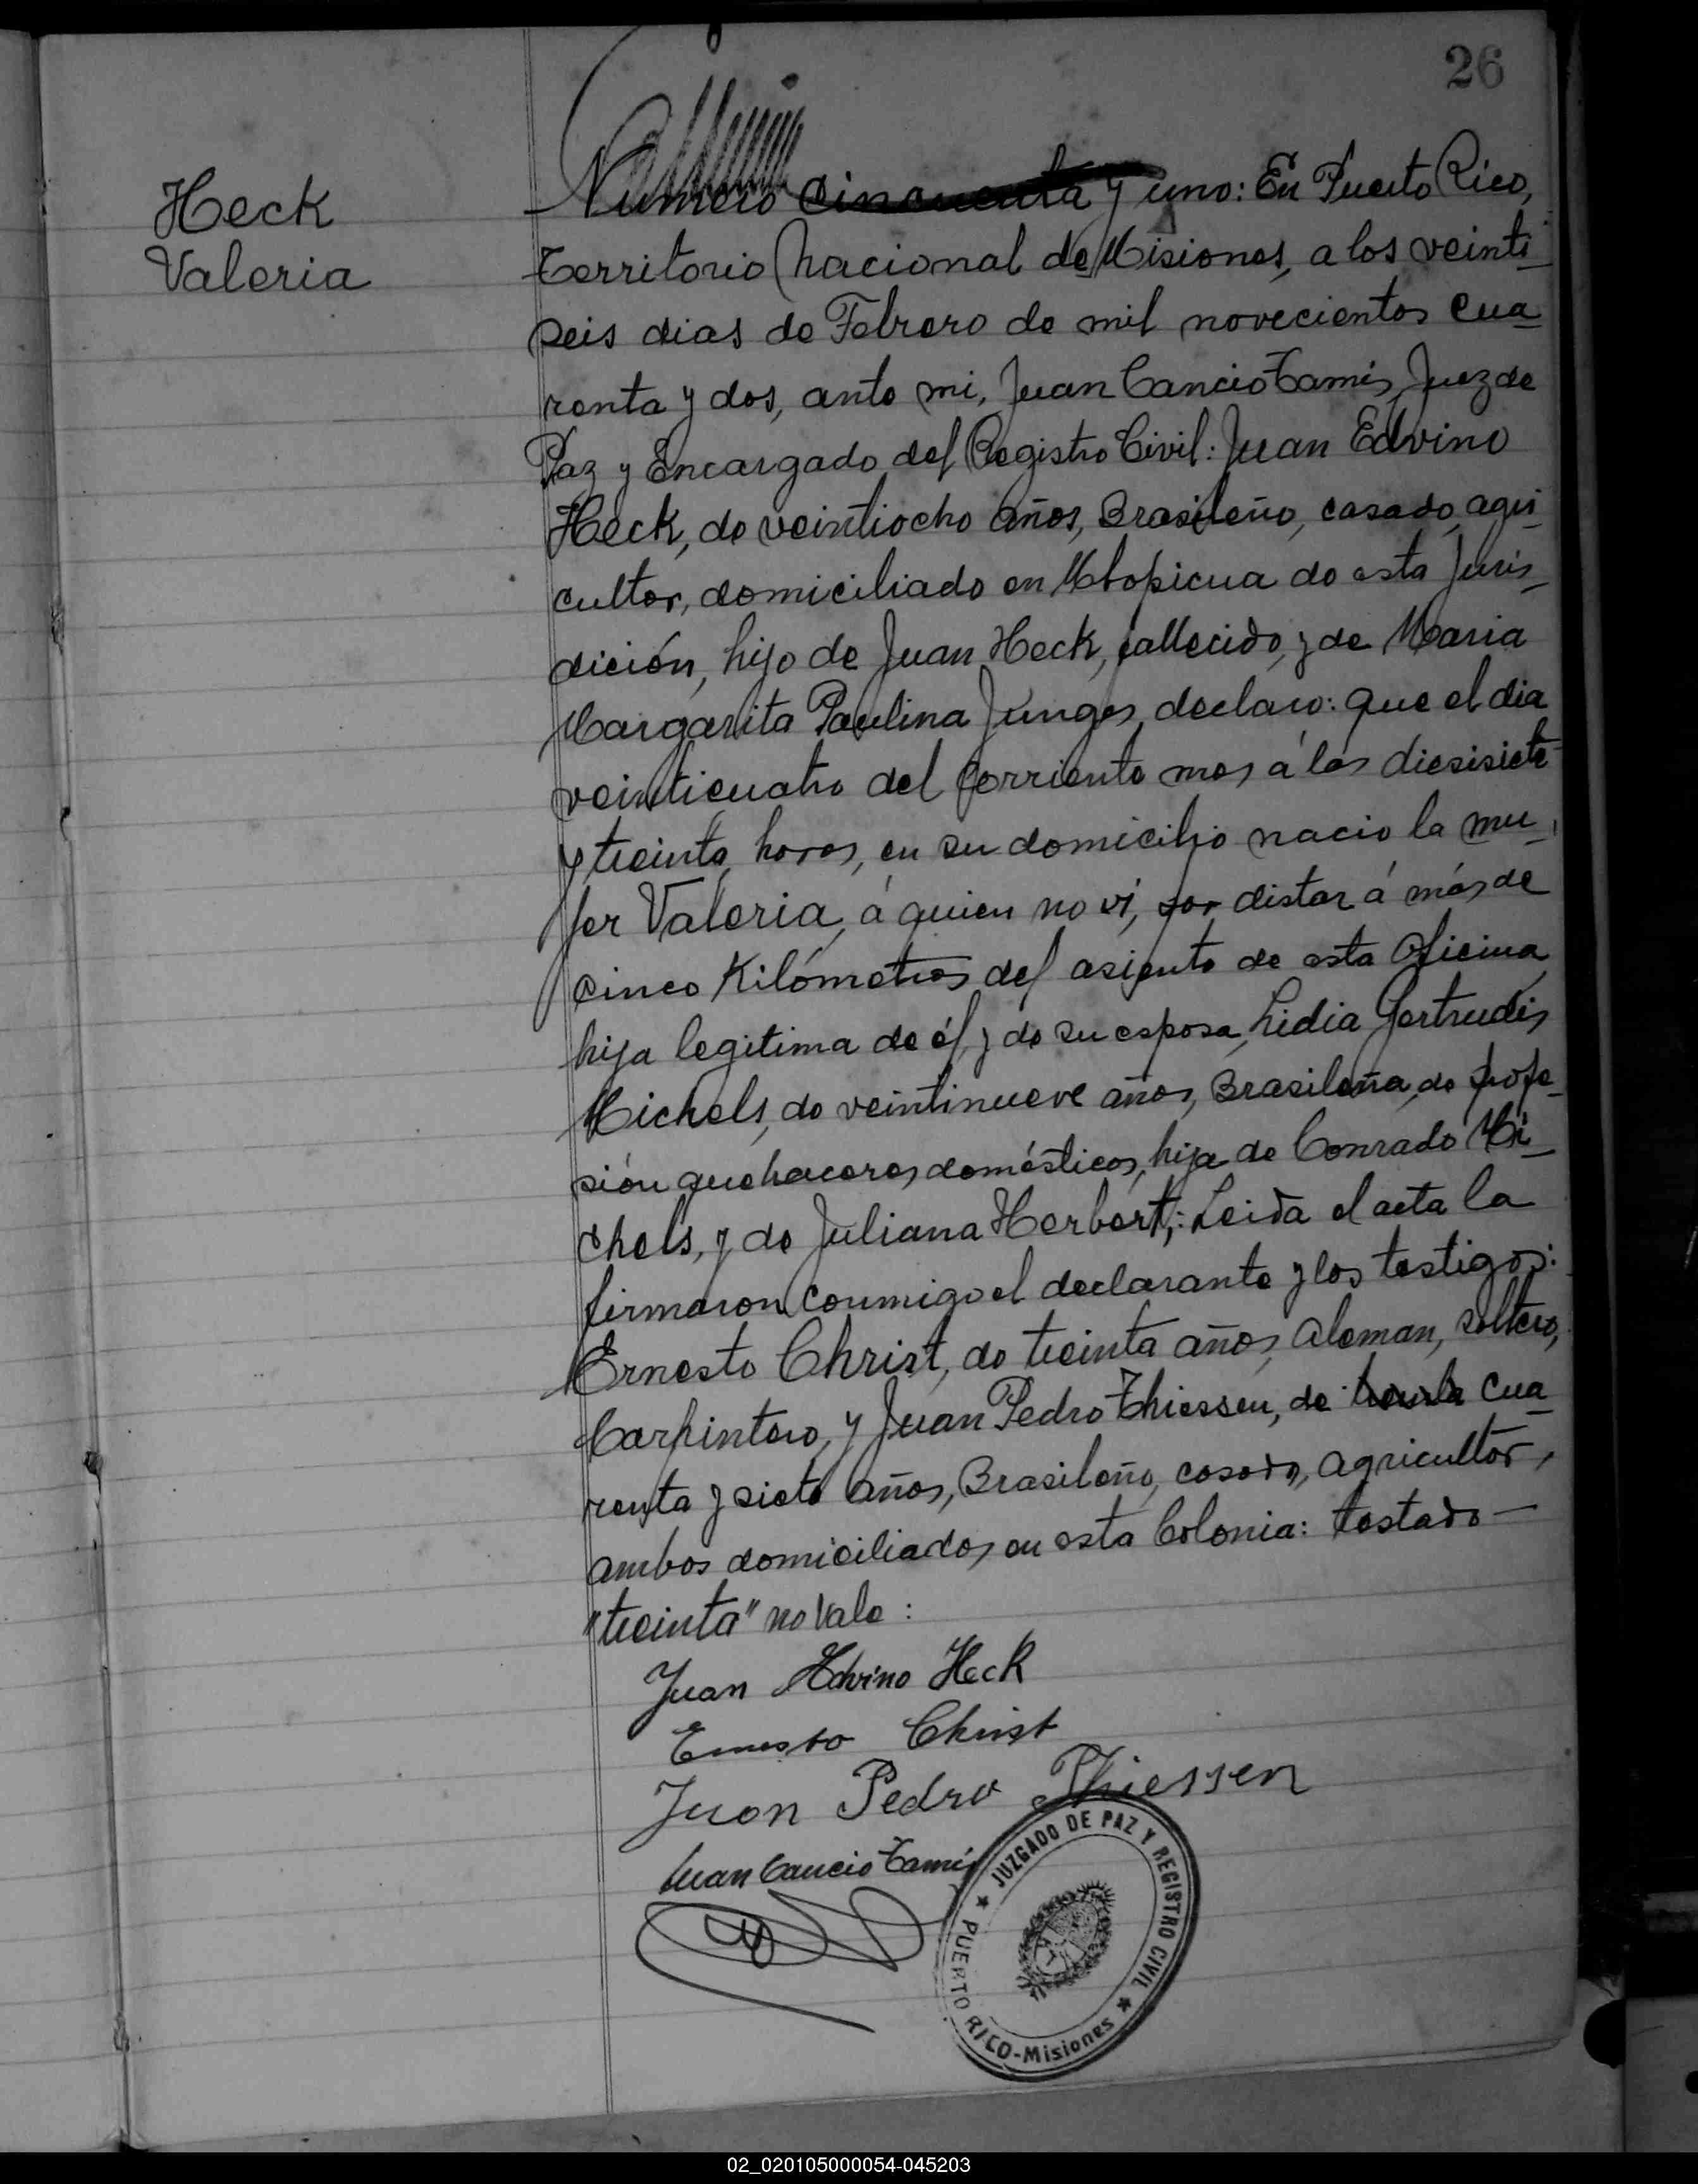 26
Heck
Valeria
Número cincuenta y uno: En Puerto Rico,
Territorio nacional de Misiones, a los veinti-
seis dias de Febrero de mil novecientos cua-
renta y dos, ante mi, Juan Cancio Tamis, Juez de
Paz y Encargado del Registro Civil: Juan Edvino
Heck, de veintiocho años, Brasileño, casado, agri-
cultor, domiciliado en Mbopicua de esta Juris-
dición, hijo de Juan Heck, fallecido, y de Maria
Margarita Paulina Junges, declaro: que el dia
veinticuatro del corriente mes á las diesisiete
y treinta horas, en su domicilio nacio la mu-
jer Valeria, á quien no vi, por distar á más de
cinco Kilómetros del asiento de esta Oficina,
hija legitima de él, y de su esposa, Lidia Gertrudis
Michels, de veintinueve años, Brasileña, de profe-
sión quehaceres domésticos, hija de Conrado Mi-
chels, y de Juliana Herbert,: Leida el acta la
firmaron conmigo el declarante y los testigos:
Ernesto Christ, de treinta años, Aleman, soltero,
Carpintero, y Juan Pedro Thiessen, de treinta cua-
renta y siete años, Brasileño, casado, agricultor,
ambos domiciliados en esta Colonia: testado —
"treinta" no vale :
Juan Edvino Heck
Ernesto Christ
Juan Pedro Thiessen
Juan Cancio Tamis
★ JUZGADO DE PAZ Y REGISTRO CIVIL ★
PUERTO RICO-Misiones
02_020105000054-045203